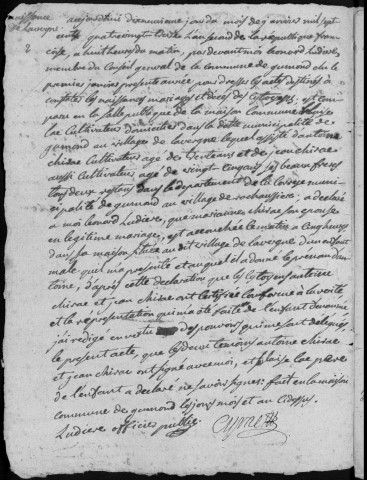 naissance
de Lavergne
aujourdhui dixneuvieme jour du mois de janvier mil sept
cents quatre vingt treize l'an second de la république fran
çoise, a huit heures du matin, par devant moi Léonard Ludiere
membre du Conseil general de la commune de gumond élu le
premier janvier presente année pour dresser les actes destinés a
constater les naissances mariages et deces des citoyens, est com
paru en la salle publique de la maison commune blaise
Cultivateur domicilié dans la ditte municipalité de
gumond au village de lavergne lequel assisté d'antoine
chirac Cultivateur age de trente ans et de jean chirac
aussi Cultivateur, age de vingt cinq ans, ses beaux freres
tous deux residens dans le departement de la Correze muni
cipalité de gumond au village de , a déclaré
a moi Leonard Ludiere, que marianne chirac son epouse
en légitime mariage, est accouchée le matin a cinq heures
dans sa maison située au dit village de lavergne d'un enfant
male qu'il m'a presenté et auquel il a donné le prenom d'an
toine, d'apres cette declaration que les citoyens antoine
chirac et jean chirac ont certifiée conforme a la verité
et la representation qui m'a été faite de l'enfant denommé
j'ai redigé en vertu des pouvoirs qui me sont delegués
le present acte, que les deux temoins antoine chirac
et jean chirac ont signé avec moi, et blaise pere
de l'enfant a declaré ne savoir signer. fait en la maison
commune de gumond les jour mois et an cidessus.
Ludiere officier public